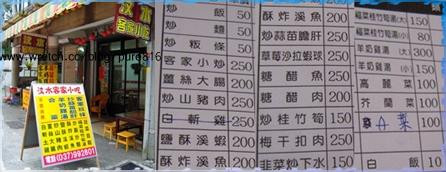 汶水
客家小吃
www.wretch.cc/blog/puree816
汶水客家小吃
電話(037)992801
炒飯 50
炒麵 50
炒粄條 50
客家小炒 250
薑絲大腸 200
炒山豬肉 250
白斬雞 250
鹽酥溪蝦 200
酥炸溪魚 200
酥炸溪魚 200
炒蒜苗膽肝 250
草莓沙拉蝦球 200
糖醋魚 200
糖醋肉 200
炒桂竹筍 150
梅干扣肉 250
韭菜炒下水 150
福菜桂竹筍湯(大) 150
福菜桂竹筍湯(小) 80
羊奶雞湯(大) 300
羊奶雞湯
高麗菜 100
芥蘭菜 100
A菜 100
白飯 10